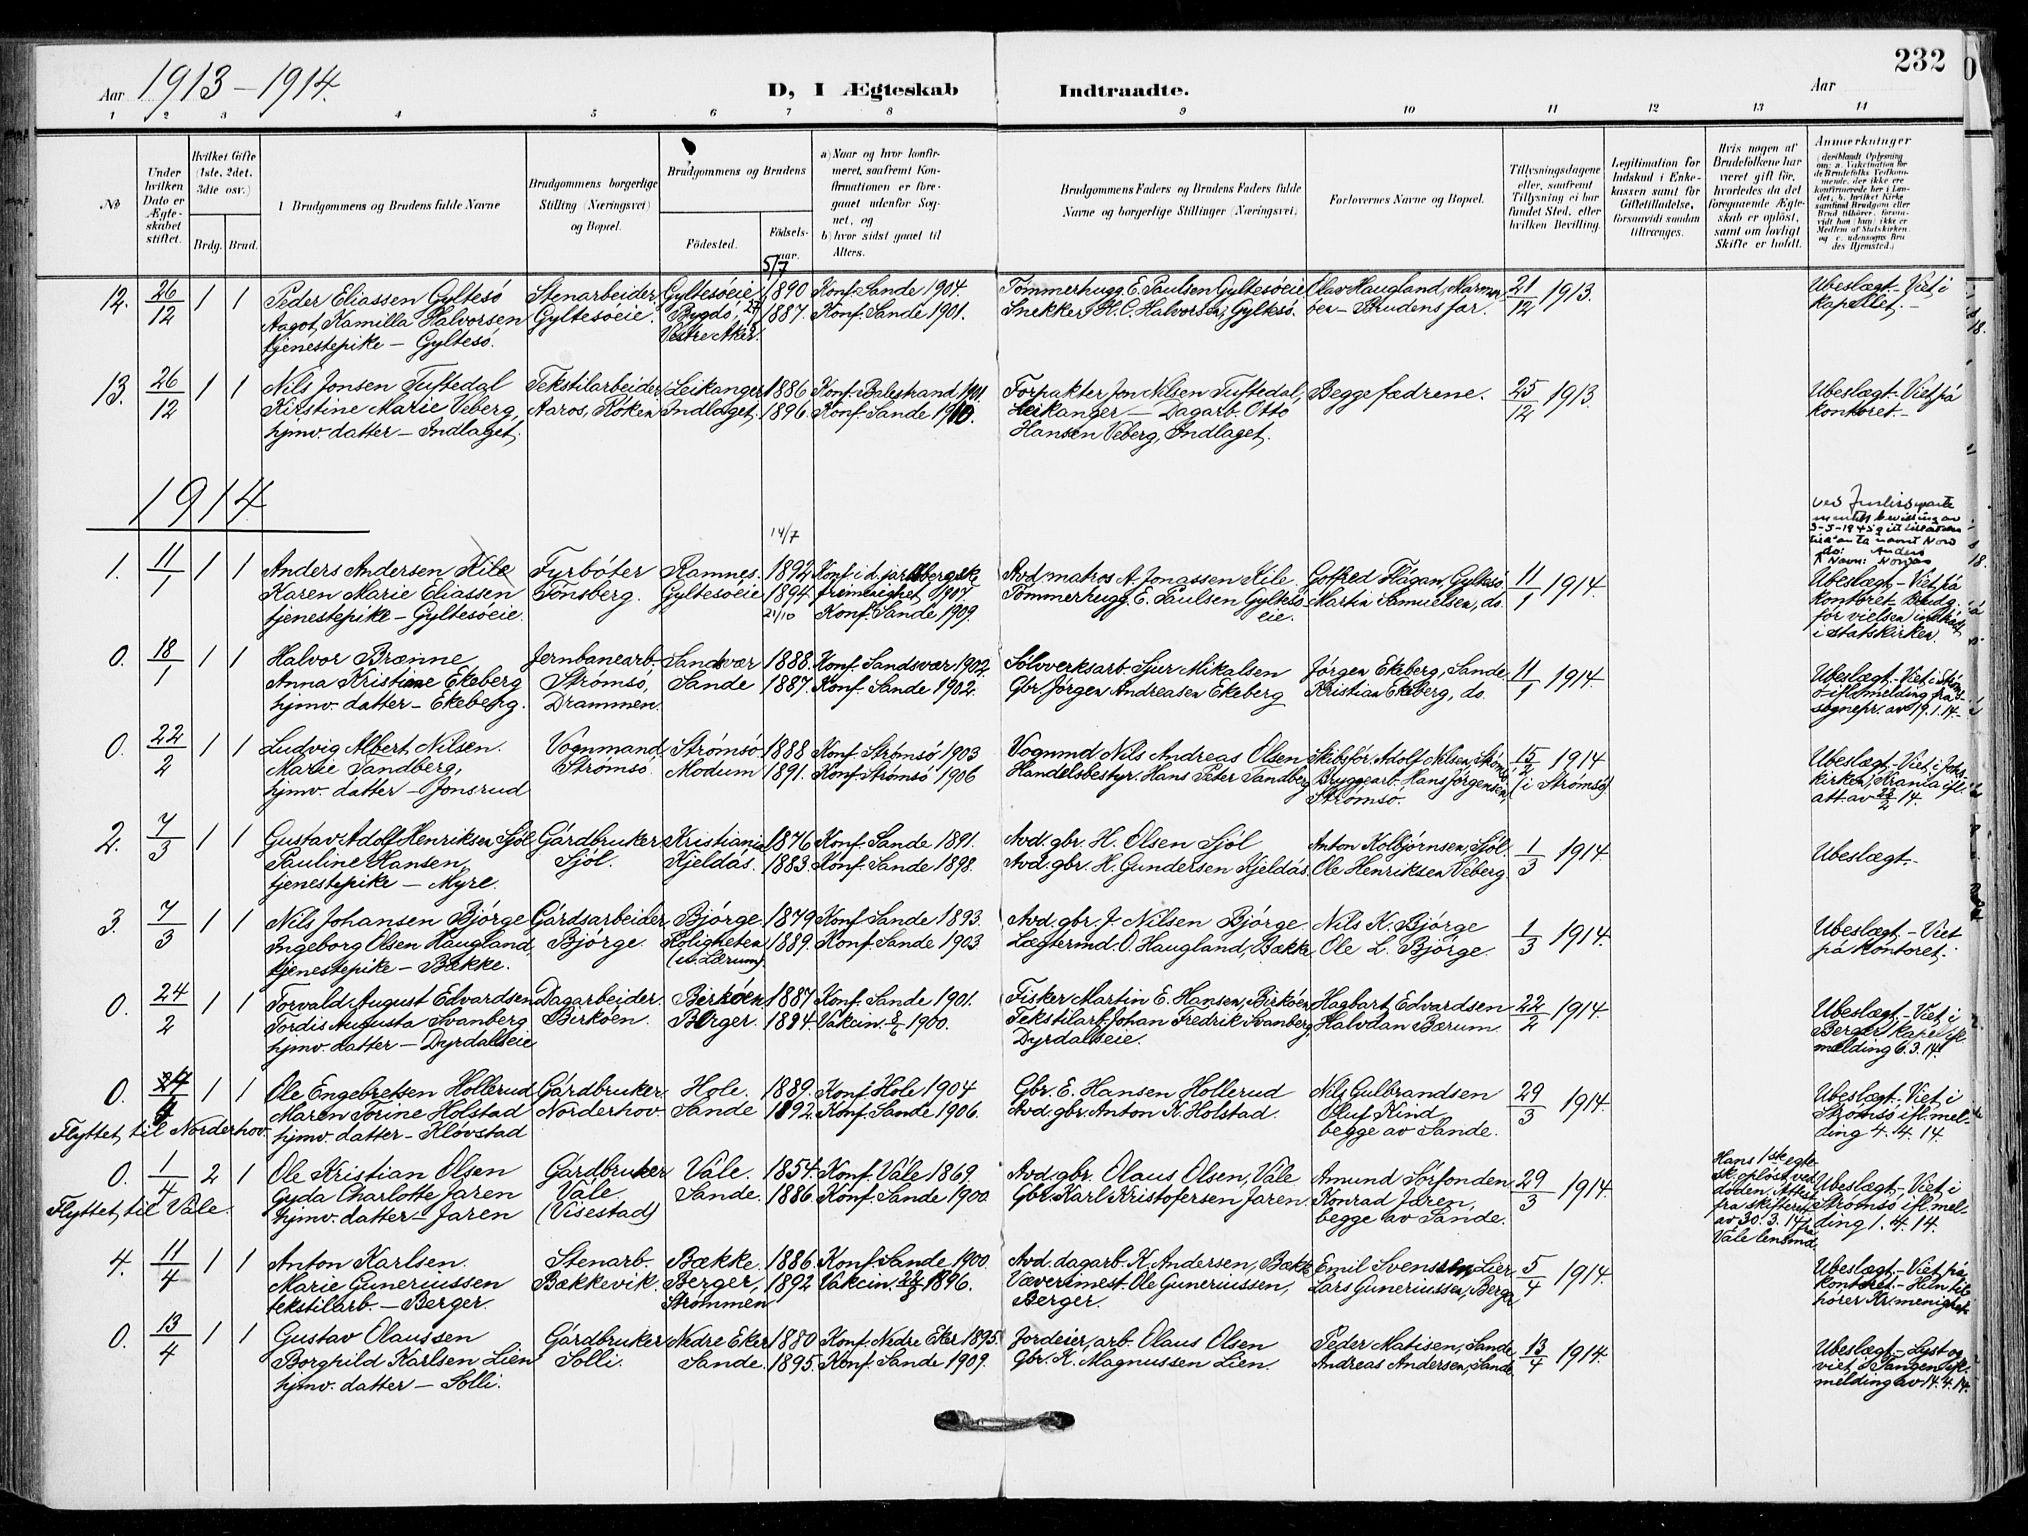 232
Aar 1913–1914.
D, I Ægteskab Indtraadte.
Aar
1 2 3 4 5 6 7 8 9 10 11 12 13 14
№
Under hvilken Dato er Ægteskabet stiftet.
Hvilket Gifte (1ste, 2det, 3dte osv.)
Brdg. Brud.
1 Brudgommens og Brudens fulde Navne
Brudgommens borgerlige Stilling (Næringsvei) og Bopæl.
Brudgommens og Brudens
Födested.
Födselsaar.
a) Naar og hvor konfirmeret, saafremt Konfirmationen er foregaaet udenfor Sognet, og
b) hvor sidst gaaet til Alters.
Brudgommens Faders og Brudens Faders fulde Navne og borgerlige Stillinger (Næringsvei)
Forlovernes Navne og Bopæl.
Tillysningsdagene eller, saafremt Tillysning ei har fundet Sted, efter hvilken Bevilling.
Legitimation for Indskud i Enkekassen samt for Giftetilladelse, forsaavidt saadan tiltrænges.
Hvis nogen af Brudefolkene har været gift för, hvorledes da det foregaaende Ægteskab er oplöst, samt om lovligt Skifte er holdt.
Anmerkninger
12. 26/12 1 1 Peder Eliassen Gyltesö Stenarbeider Gyltesöeie 5/7 1890 Konf. Sande 1904. Tömmerhugg. E. Paulsen Gyltesöeie Olav Haugland, 21/12 1913. Ubeslægt. Viet i
Aagot Kamilla Halvorsen Gyltesöeie. Bygdö, 1887. Konf. Sande 1901. Snekker H. C. Halvorsen, Gyltesö. Brudens far. kapellet.
tjenestepike – Gyltesö. Vestre Aker.
13. 26/12 1 1 Nils Jonsen Tuftedal Tekstilarbeider Leikanger 1886 Konf. Balestrand 1901. Forpakter Jon Nilsen Tuftedal, Begge fædrene. 25/12 1913 Ubeslægt. Viet på
Kirstine Marie Veberg, Aaros, Röken Indlaget, 1896. Konf. Sande 1910. Leikanger – Dagarb. Otto kontoret.
hjmv. datter – Indlaget. Hansen Veberg, Indlaget.
1914
14/7
1. 11/1 1 1 Anders Andersen Kile Fyrböter Ramnes. 1892 Konf. i d. jarlsbergske Avd. matros A. Jonassen Kile. Gotfred Flågan, Gyltesö 11/1 1914. Ubeslægt. Viet på
Karen Marie Eliassen Tönsberg. Gyltesöeie 1894. frimenighet 1907. Tömmerhugg. E. Paulsen Gyltesö Martin Samuelsen, do. kontoret. Brudg.
tjenestepike – Gyltesöeie. 21/10 Konf. Sande 1909. eie. för vielsen indtrådt
i statskirken.
0. 18/1 1 1 Halvor Brænne Jernbanearb. Sandsvær 1888. Konf. Sandsvær 1902. Sölvverksarb. Sjur Mikalsen Jörgen Ekeberg, Sande. 11/1 1914. Ubeslægt. Viet i
Anna Kristine Ekeberg Strömsö, Sande 1887. Konf. Sande 1902. Gbr. Jörgen Andreasen Ekeberg Kristian Ekeberg, do. ifl. melding fra
hjmv. datter – Ekeberg. Drammen. sognepr. av 19.1.14.
0. 22/2 1 1 Ludvig Albert Nilsen. Vognmand Strömsö 1888 Konf. Strömsö 1903 Vognmd Nils Andreas Olsen Skibsför. Adolf Nilsen, Strömsö 15/2 1914 Ubeslægt. Viet i
Marie Tandberg, Strömsö. Modum 1891. Konf. Strömsö 1906 Handelsbestyr. Hans Peter Tandberg Bryggearb. Hans Jörgensen, (i Strömsö) kirken, Krania ifl.
hjmv. datter – Jonsrud Strömsö. att. av 22/2 14.
2. 7/3 1 1 Gustav Adolf Henriksen Sjöl Gårdbruker Kristiania 1876 Konf. Sande 1891. Avd. gbr. H. Olsen Sjöl Anton Kolbjörnsen, Sjöl. 1/3 1914 Ubeslægt.
Pauline Hansen, Sjöl. Kjeldås. 1883. Konf. Sande 1898. Avd. gbr. H. Gundersen Kjeldås. Ole Henriksen Veberg
tjenestepike – Myre.
3. 7/3 1 1 Nils Johansen Björge Gårdsarbeider Björge. 1879 Konf. Sande 1893. Avd. gbr. J. Nilsen Björge Nils K. Björge 1/3 1914. Ubeslægt. – Viet
Ingeborg Olsen Haugland, Björge. Roligheten 1889. Konf. Sande 1903 Lægtermd. O. Haugland, Bække Ole L. Björge. på kontoret.
tjenestepike – Bække. (u. Lærum).
0. 24/2 1 1 Torvald August Edvardsen Dagarbeider. Birköen 1887 Konf. Sande 1901. Fisker Martin E. Hansen, Birköen Hagbart Edvardsen 22/2 1914. Ubeslægt. – Viet i
Tordis Augusta Svanberg Birköen. Berger. 1894. Vakcin. 1900. Tekstilarb. Johan Fredrik Svanberg Halvdan Bærum. Berger kapel ifl.
hjmv. datter – Dyrdalseie Dyrdalseie. melding 6.3.14.
0. 1 1 Ole Engebretsen Hollerud Gårdbruker. Hole. 1889. Konf. Hole 1904 Gbr. E. Hansen Hollerud Nils Gulbrandsen 29/3 1914. Ubeslægt. Viet i
Maren Torine Holstad Norderhov. Sande 1892. Konf. Sande 1906. Avd. gbr. Anton K. Holstad. Oluf Kind Strömsö ifl. mel-
Flyttet til Norderhov. hjmv. datter – Klövstad begge av Sande. ding 4.4.14.
0. 1/4 2 1 Ole Kristian Olsen Gårdbruker Våle. 1854. Konf. Våle 1869. Avd. gbr. Olaus Olsen, Våle Amund Sörfonden 29/3 1914. Hans 1ste egtesk. oplöst ved döden. Attest fra skifterett av 30.3.14 fra Våle lensmd. Ubeslægt. Viet i
Gyda Charlotte Jaren Våle. Sande. 1886. Konf. Sande 1900. Gbr. Karl Kristofersen Jaren. Konrad Jaren, Strömsö ifl. mel-
Flyttet til Våle. hjmv. datter – Jaren (Visestad) begge av Sande. ding 1.4.14.
4. 11/4 1 1 Anton Karlsen. Stenarb. Bække. 1886. Konf. Sande 1900. Avd. dagarb. K. Andersen, Bække Emil Svensen, Lier 5/4 1914. Ubeslægt. – Viet på
Marie Guneriussen Bækkevik. Berger, 1892 Vakcin. 1896. Vævermest. Ole Guneriussen, Lars Guneriussen, Berger kontoret. – Hun til-
tekstilarb. – Berger. Strömmen Berger. hörer Kr. menighet.
0. 13/4 1 1 Gustav Olaussen Gårdbruker Nedre Eker 1880 Konf. Nedre Eker 1895. Jordeier, arb. Olaus Olsen Peder Matisen, Sande 13/4 1914. Ubeslægt. – Lyst og
Borghild Karlsen Lien Solli. Sande. 1895. Konf. Sande 1909. Gbr. K. Magnussen Lien. Andreas Andersen, Sande. viet i Tangen ifl.
hjmv. datter – Solli. melding av 14.4.14.